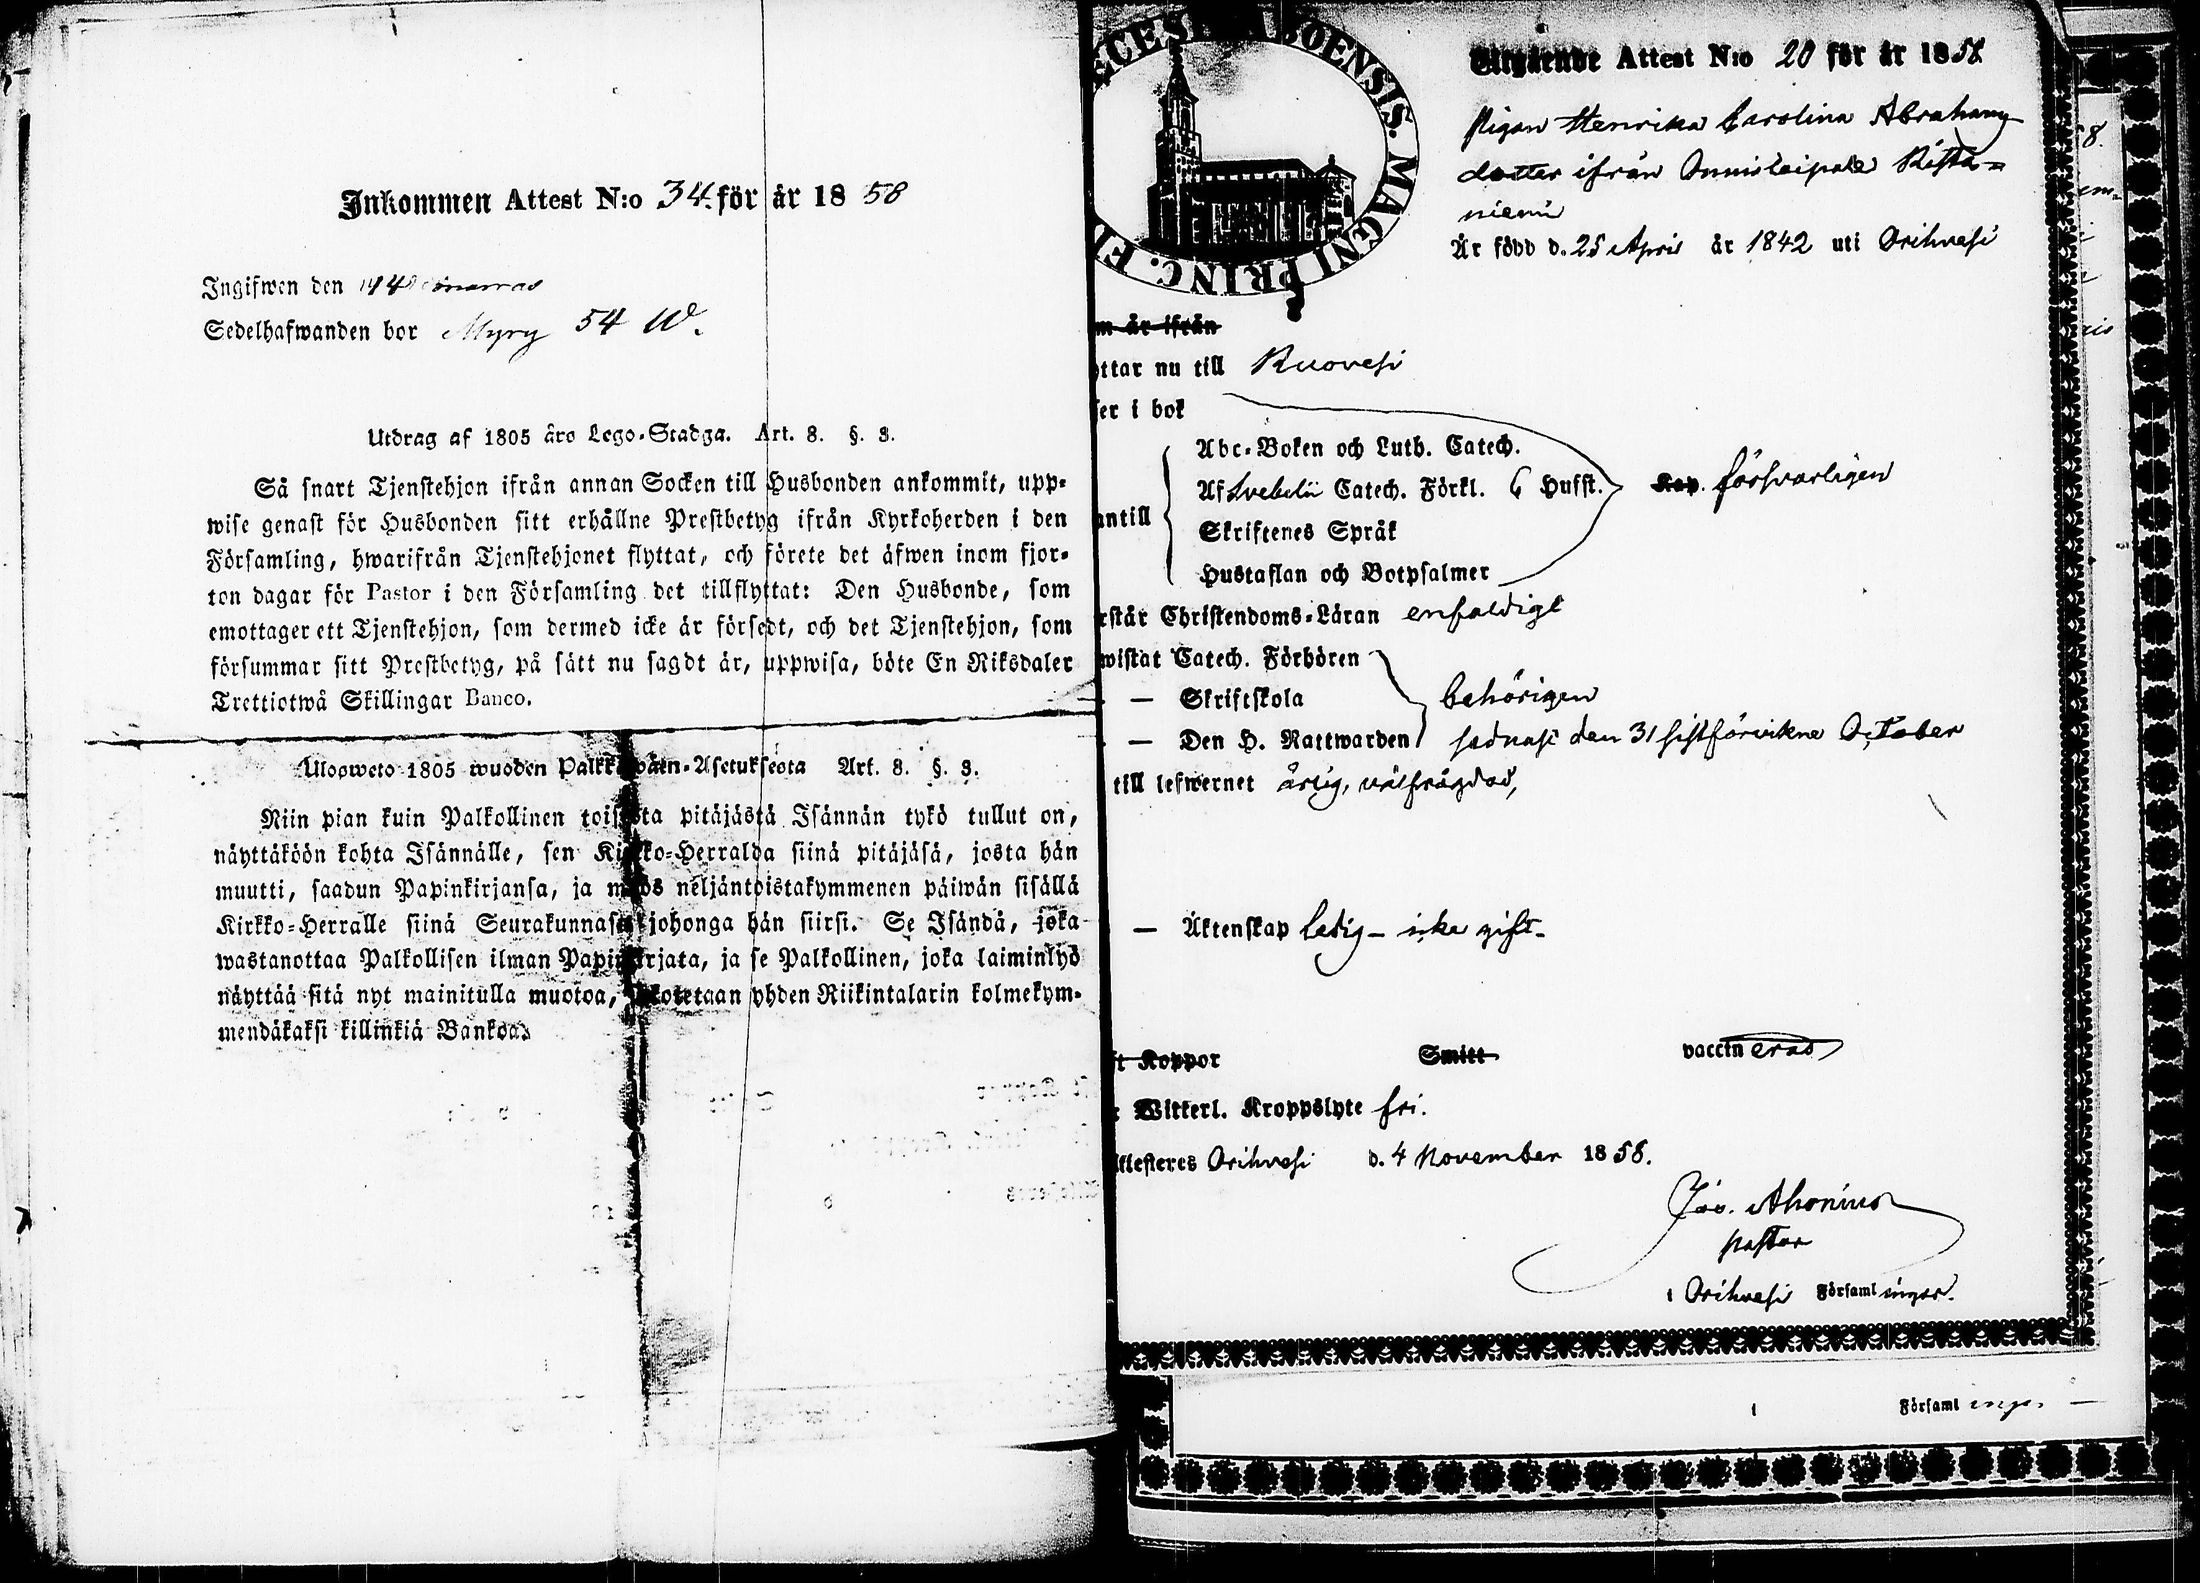 Inkommen Attest N:o 34. för år 1858
Ingifwen den
Sedelhafwanden bor Myry 54 W.
Utdrag af 1805 års Lego-Stadga. Art. 8. §. 3.
Så snart Tjenstehjon ifrån annan Socken till Husbonden ankommit, upp-
wise genast för Husbonden sitt erhållne Prestbetyg ifrån Kyrkoherden i den
Församling, hwarifrån Tjenstehjonet flyttat, och förete det äfwen inom fjor-
ton dagar för Pastor i den Församling det tillflyttat: Den Husbonde, som
emottager ett Tjenstehjon, som dermed icke är försedt, och det Tjenstehjon, som
försummar sitt Prestbetyg, på sätt nu sagdt är, uppwisa, böte En Riksdaler
Trettiotwå Skillingar Banco.
Ulosweto 1805 wuoden Palkkawäen-Asetuksesta Art. 8. §. 3.
Niin pian kuin Palkollinen toisesta pitäjästä Isännän tykö tullut on,
näyttäköön kohta Isännälle, sen Kirkko-Herralda siinä pitäjäsä, josta hän
muutti, saadun Papinkirjansa, ja myös neljäntoistakymmenen päiwän sisällä
Kirkko-Herralle siinä Seurakunnasa johonga hän siirsi. Se Isändä, joka
wastanottaa Palkollisen ilman Papinkirjata, ja se Palkollinen, joka laiminlyö
näyttää sitä nyt mainitulla muotoa, sakotetaan yhden Riikintalarin kolmekym-
mendäkaksi killinkiä Bankoa.
ECESIS ABOENSIS. MAGNI PRINC. FI
Utgående Attest N:o 20 för år 1858
Pigan Henrika Carolina Abrahams
dotter ifrån Onnistaipale Rista-
niemi
Är född d. 25 April år 1842 uti Orihvesi
m är ifrån
ottar nu till Ruovesi
ser i bok
Abc-Boken och Luth. Catech.
Af Svebelii Catech. Förkl. 6 Hufst. Kap. försvarligen
antill
Skriftenes Språk
Hustaflan och Botpsalmer
rstår Christendoms-Läran enfaldigt
wistat Catech. Förhören
— Skriftskola behörigen
— Den H. Nattwarden sednast den 31 sistförvikne October
till lefwernet ärlig, välfrägdad,
— Äktenskap ledig - icke gift -
ft Koppor Smitt vaccinerad
r Witterl. Kroppslyte fri.
ttesteres Orihvesi d. 4 November 1858.
Jos. Ahonius
pastor
i Orihvesi Församlingar.
Församl